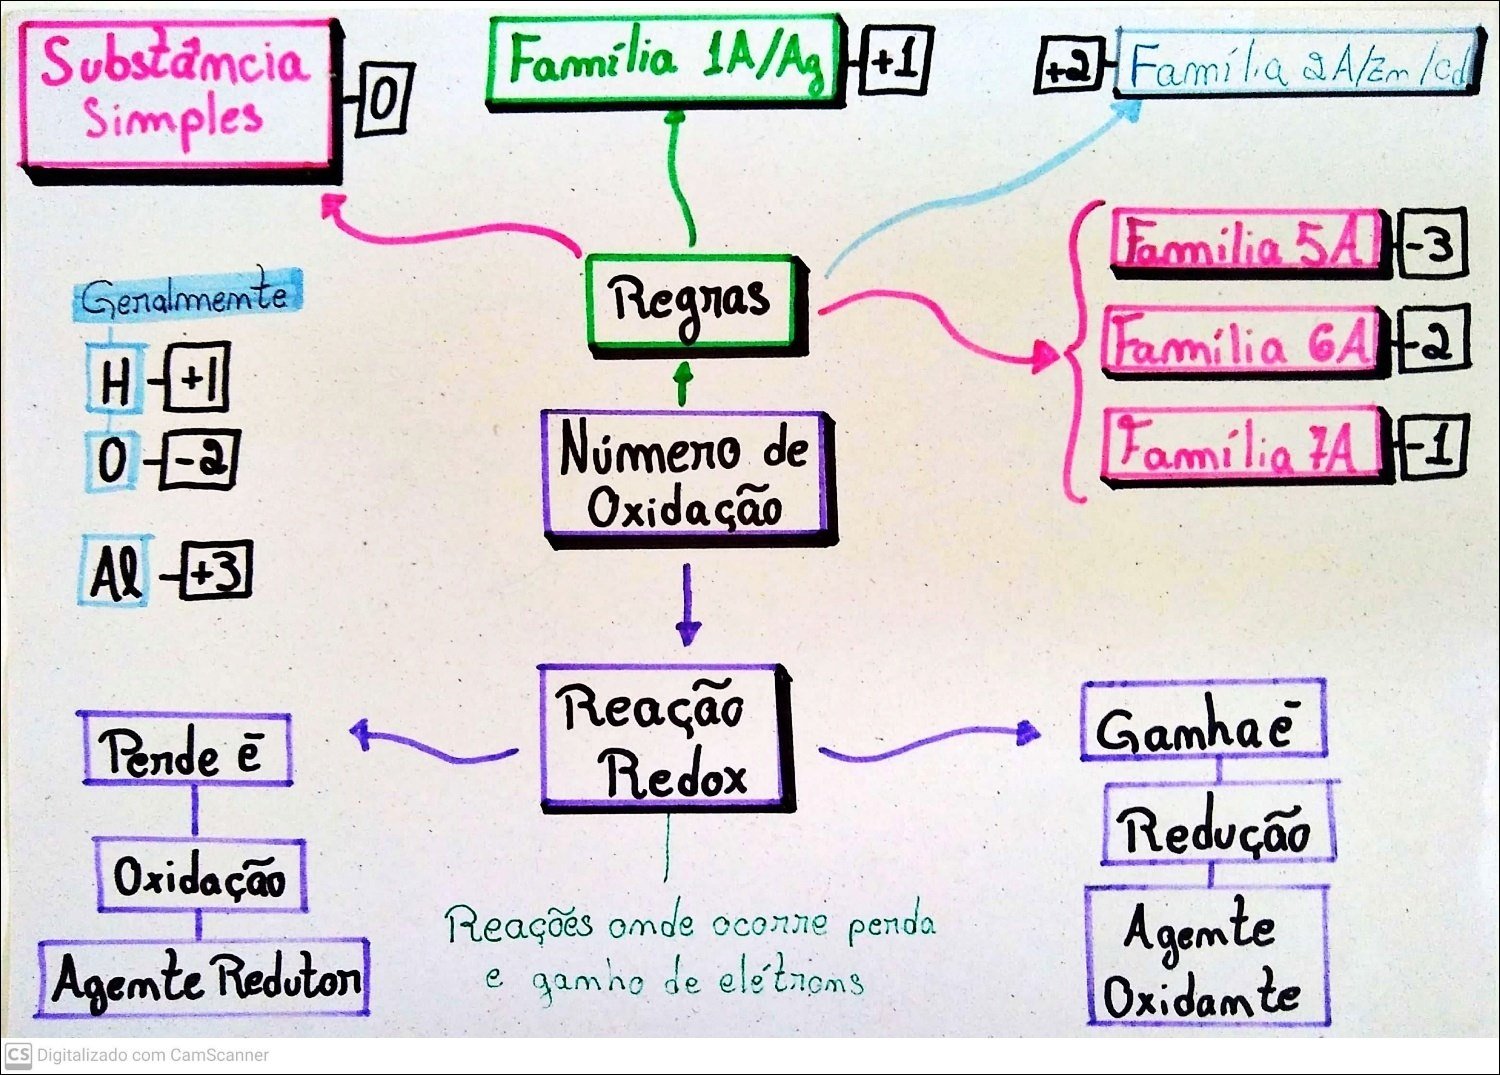 Substância
Simples
0
Família 1A/Ag
+1
+2
Família 2A/Zn/Cd
Regras
Família 5A
-3
Família 6A
-2
Família 7A
-1
Geralmente
H
+1
O
-2
Al
+3
Número de
Oxidação
Reação
Redox
Perde e-
Oxidação
Agente Redutor
Ganha e-
Redução
Agente
Oxidante
Reações onde ocorre perda
e ganho de elétrons
CS Digitalizado com CamScanner